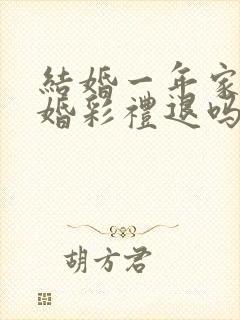 結婚一年家
婚彩禮退嗎
胡方君